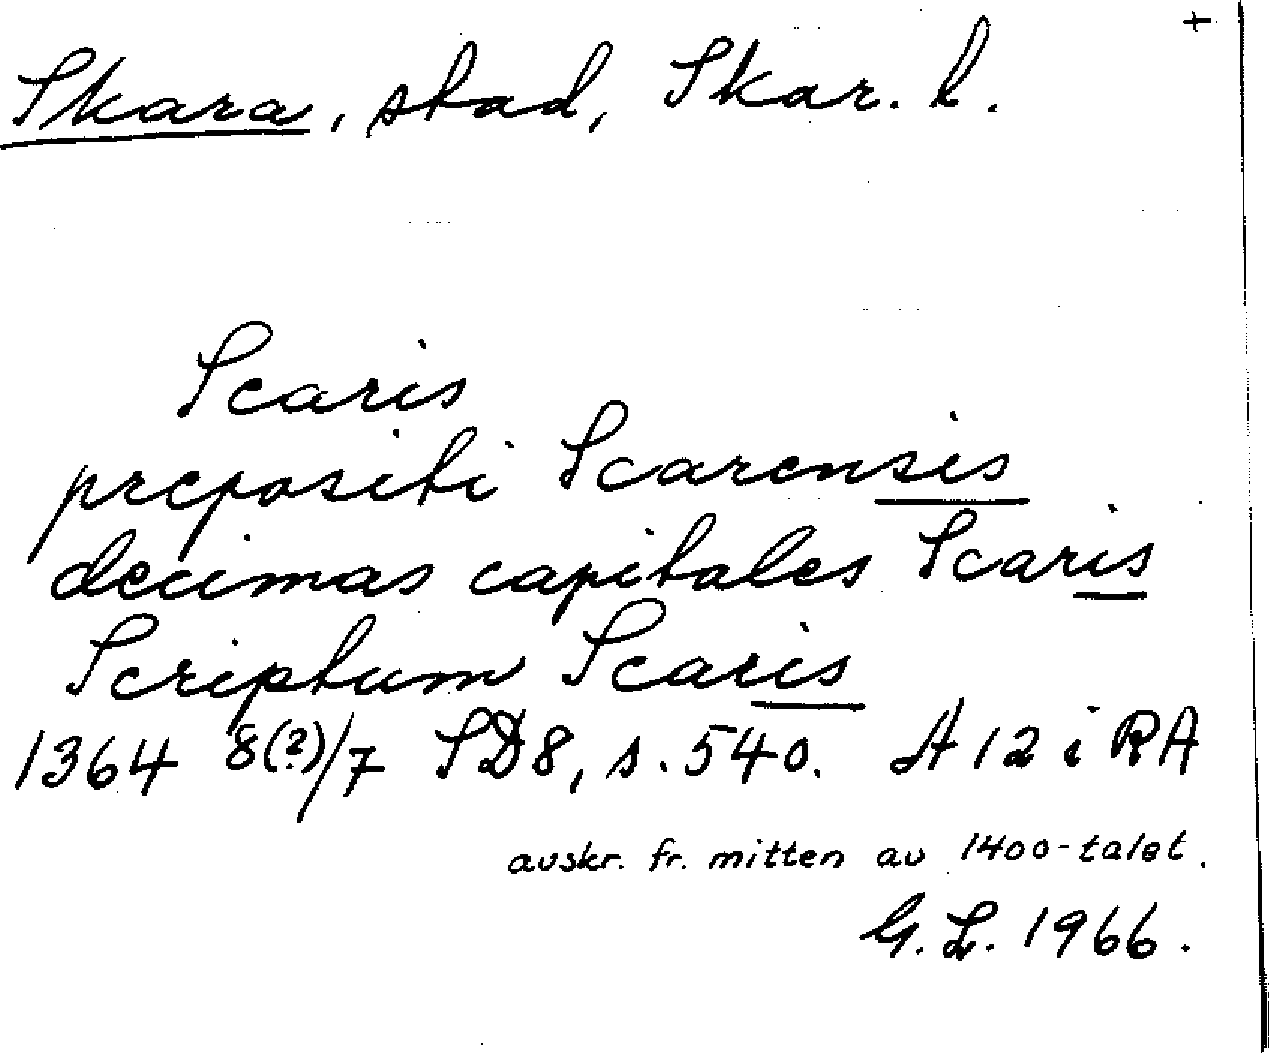 +
Skara, stad, Skar. l.
Scaris
prepositi Scarensis
decimas capitales Scaris
Scriptum Scaris
1364 8(?)/7 SD8, s. 540. A 12 i RA
avskr. fr. mitten av 1400-talet.
G. L. 1966.